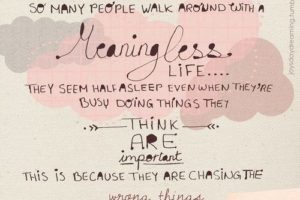 SO MANY PEOPLE WALK AROUND WITH A
Meaningless
LIFE....
THEY SEEM HALF ASLEEP EVEN WHEN THEY'RE
BUSY DOING THINGS THEY
THINK
ARE
important
THIS IS BECAUSE THEY ARE CHASING THE
wrong things
joysdaydreaming.tumb